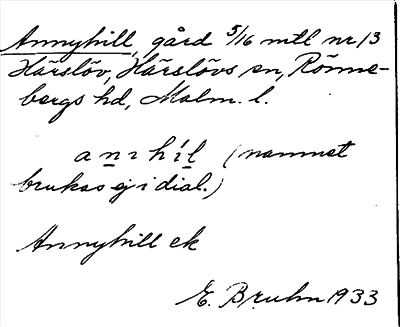 Annyhill, gård 5/16 mtl nr 13
Härslöv, Härslövs sn, Rönne-
bergs hd, Malm. l.
anıhíl (namnet
brukas ej i dial.)
Annyhill ek
E. Bruhn 1933